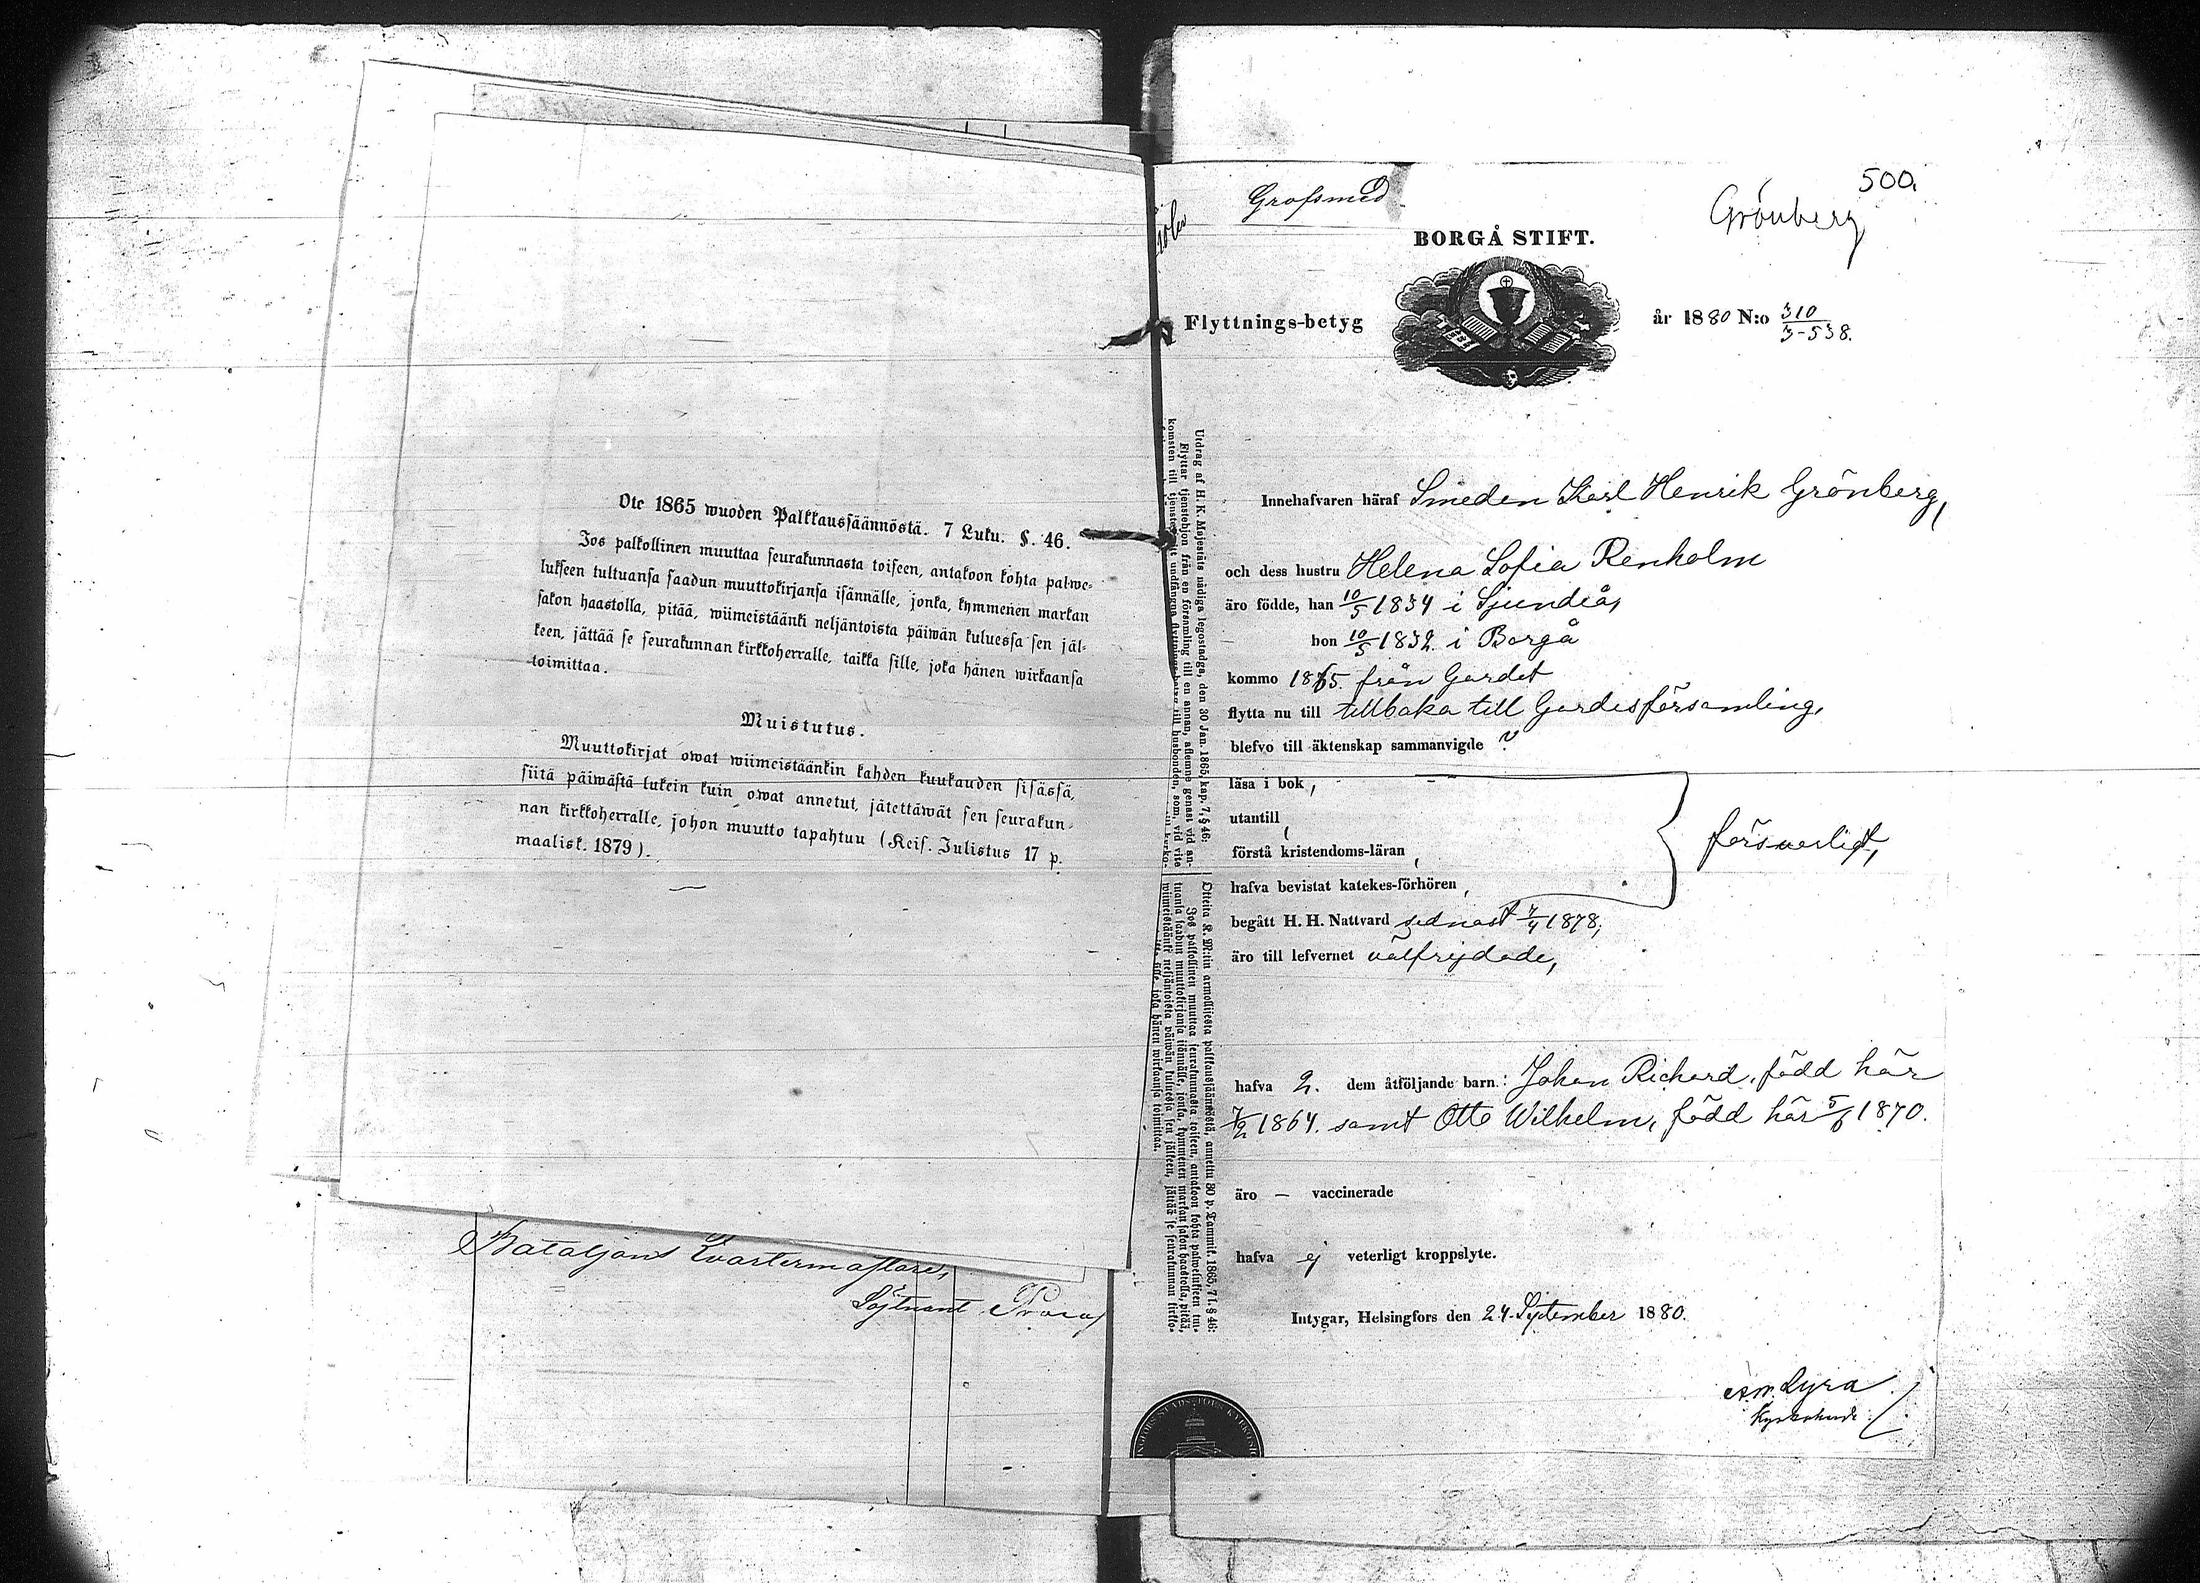 Ote 1865 wuoden Palkkaussäännöstä. 7 Luku. §. 46.
Jos palkollinen muuttaa seurakunnasta toiseen, antakoon kohta palwe-
lukseen tultuansa saadun muuttokirjansa isännälle, jonka, kymmenen markan
sakon haastolla, pitää, wiimeistäänki neljäntoista päiwän kuluessa sen jäl-
keen, jättää se seurakunnan kirkkoherralle, taikka sille, joka hänen wirkaansa
toimittaa.
Muistutus.
Muuttokirjat owat wiimeistäänkin kahden kuukauden sisässä,
siitä päiwästä lukein kuin owat annetut, jätettäwät sen seurakun-
nan kirkkoherralle, johon muutto tapahtuu (Keis. Julistus 17 p.
maalisk. 1879).
Bataljons Qvartermästare,
Löjtnant
500.
Grofsmed
Grönberg
BORGÅ STIFT.
Flyttnings-betyg
år 1880 N:o 310/3-538.
Innehafvaren häraf Smeden Karl Henrik Grönberg,
och dess hustru Helena Sofia Renholm
äro födde, han 10/5 1834 i Sjundeå,
hon 10/5 1832. i Borgå
kommo 1865. från Gardet
flytta nu till tillbaka till Gardesförsamling,
blefvo till äktenskap sammanvigde ?
läsa i bok,
utantill,
förstå kristendoms-läran,
hafva bevistat katekes-förhören,
försvarligt,
begått H. H. Nattvard sednast 7/4 1878,
äro till lefvernet välfrejdade,
hafva 2. dem åtföljande barn: Johan Richard, född här
7/2 1864. samt Otto Wilhelm, född här 5/6 1870.
äro — vaccinerade
hafva ej veterligt kroppslyte.
Intygar, Helsingfors den 24. September 1880.
Lyra
Kyrkoherde
Utdrag af H. K. Majestäts nådiga legostadga, den 30 Jan. 1865, kap. 7, § 46:
Flyttar tjenstehjon från en församling till en annan, aflemne genast vid an-
komsten till
till husbonden, som, vid vite
Otteita K. M:tin armollisesta palkkaussäännöstä, annettu 30 p. Tammik. 1865, 7 l. § 46:
Jos palkollinen muuttaa seurakunnasta toiseen, antakoon kohta palwelukseen tul-
tuansa saadun muuttokirjansa isännälle, jonka, kymmenen markan sakon haastolla, pitää,
wiimeistäänki neljäntoista päiwän kuluessa sen jälkeen, jättää se seurakunnan kirkko-
sille, joka hänen wirkaansa toimittaa.